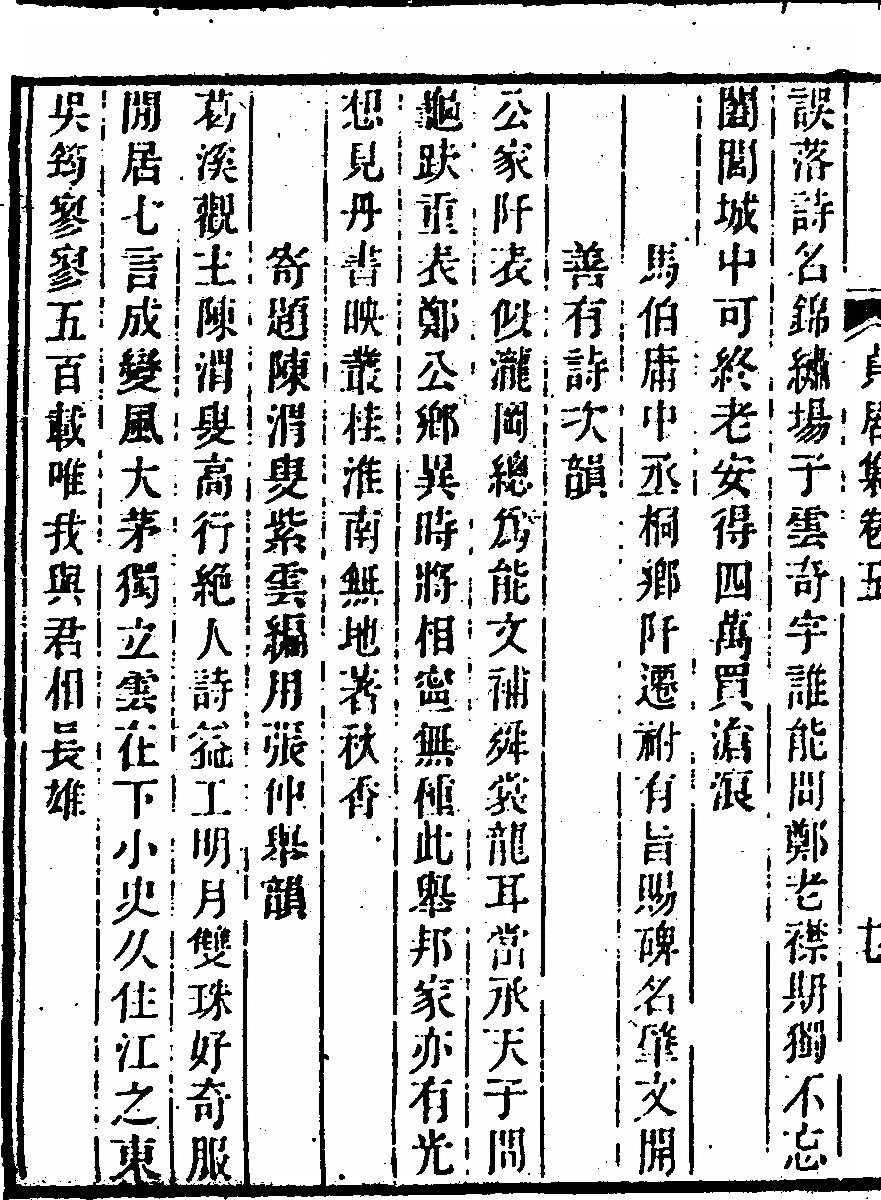 貞居集卷五 七
誤落詩名錦繡場子雲奇字誰能問鄭老襟期獨不忘
闔閭城中可終老安得四萬買滄浪
馬伯庸中丞桐鄉阡遷祔有旨賜碑名肇文開
善有詩次韻
公家阡表似瀧岡總爲能文補舜裳龍耳當承天子問
龜趺重表鄭公鄉異時將相寧無種此舉邦家亦有光
想見丹書映叢桂淮南無地著秋香
寄題陳渭叟紫雲編用張仲舉韻
葛溪觀主陳渭叟高行絶人詩益工明月雙珠好奇服
閒居七言成變風大茅獨立雲在下小史久住江之東
吳筠寥寥五百載唯我與君相長雄